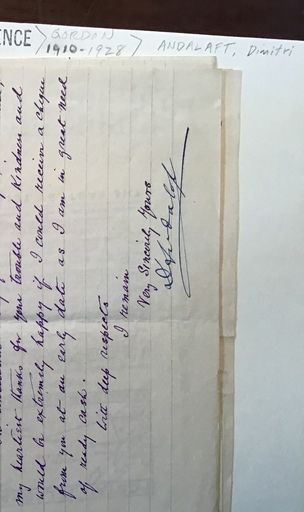 my heartiest thanks for your trouble and kindness and
would be extremely happy if I could receive a cheque
from you at an early date as I am in great need
of ready cash.
With deep respects
I remain
Very Sincerely Yours
ENCE
1910-1928
ANDALAFT, Dimitri